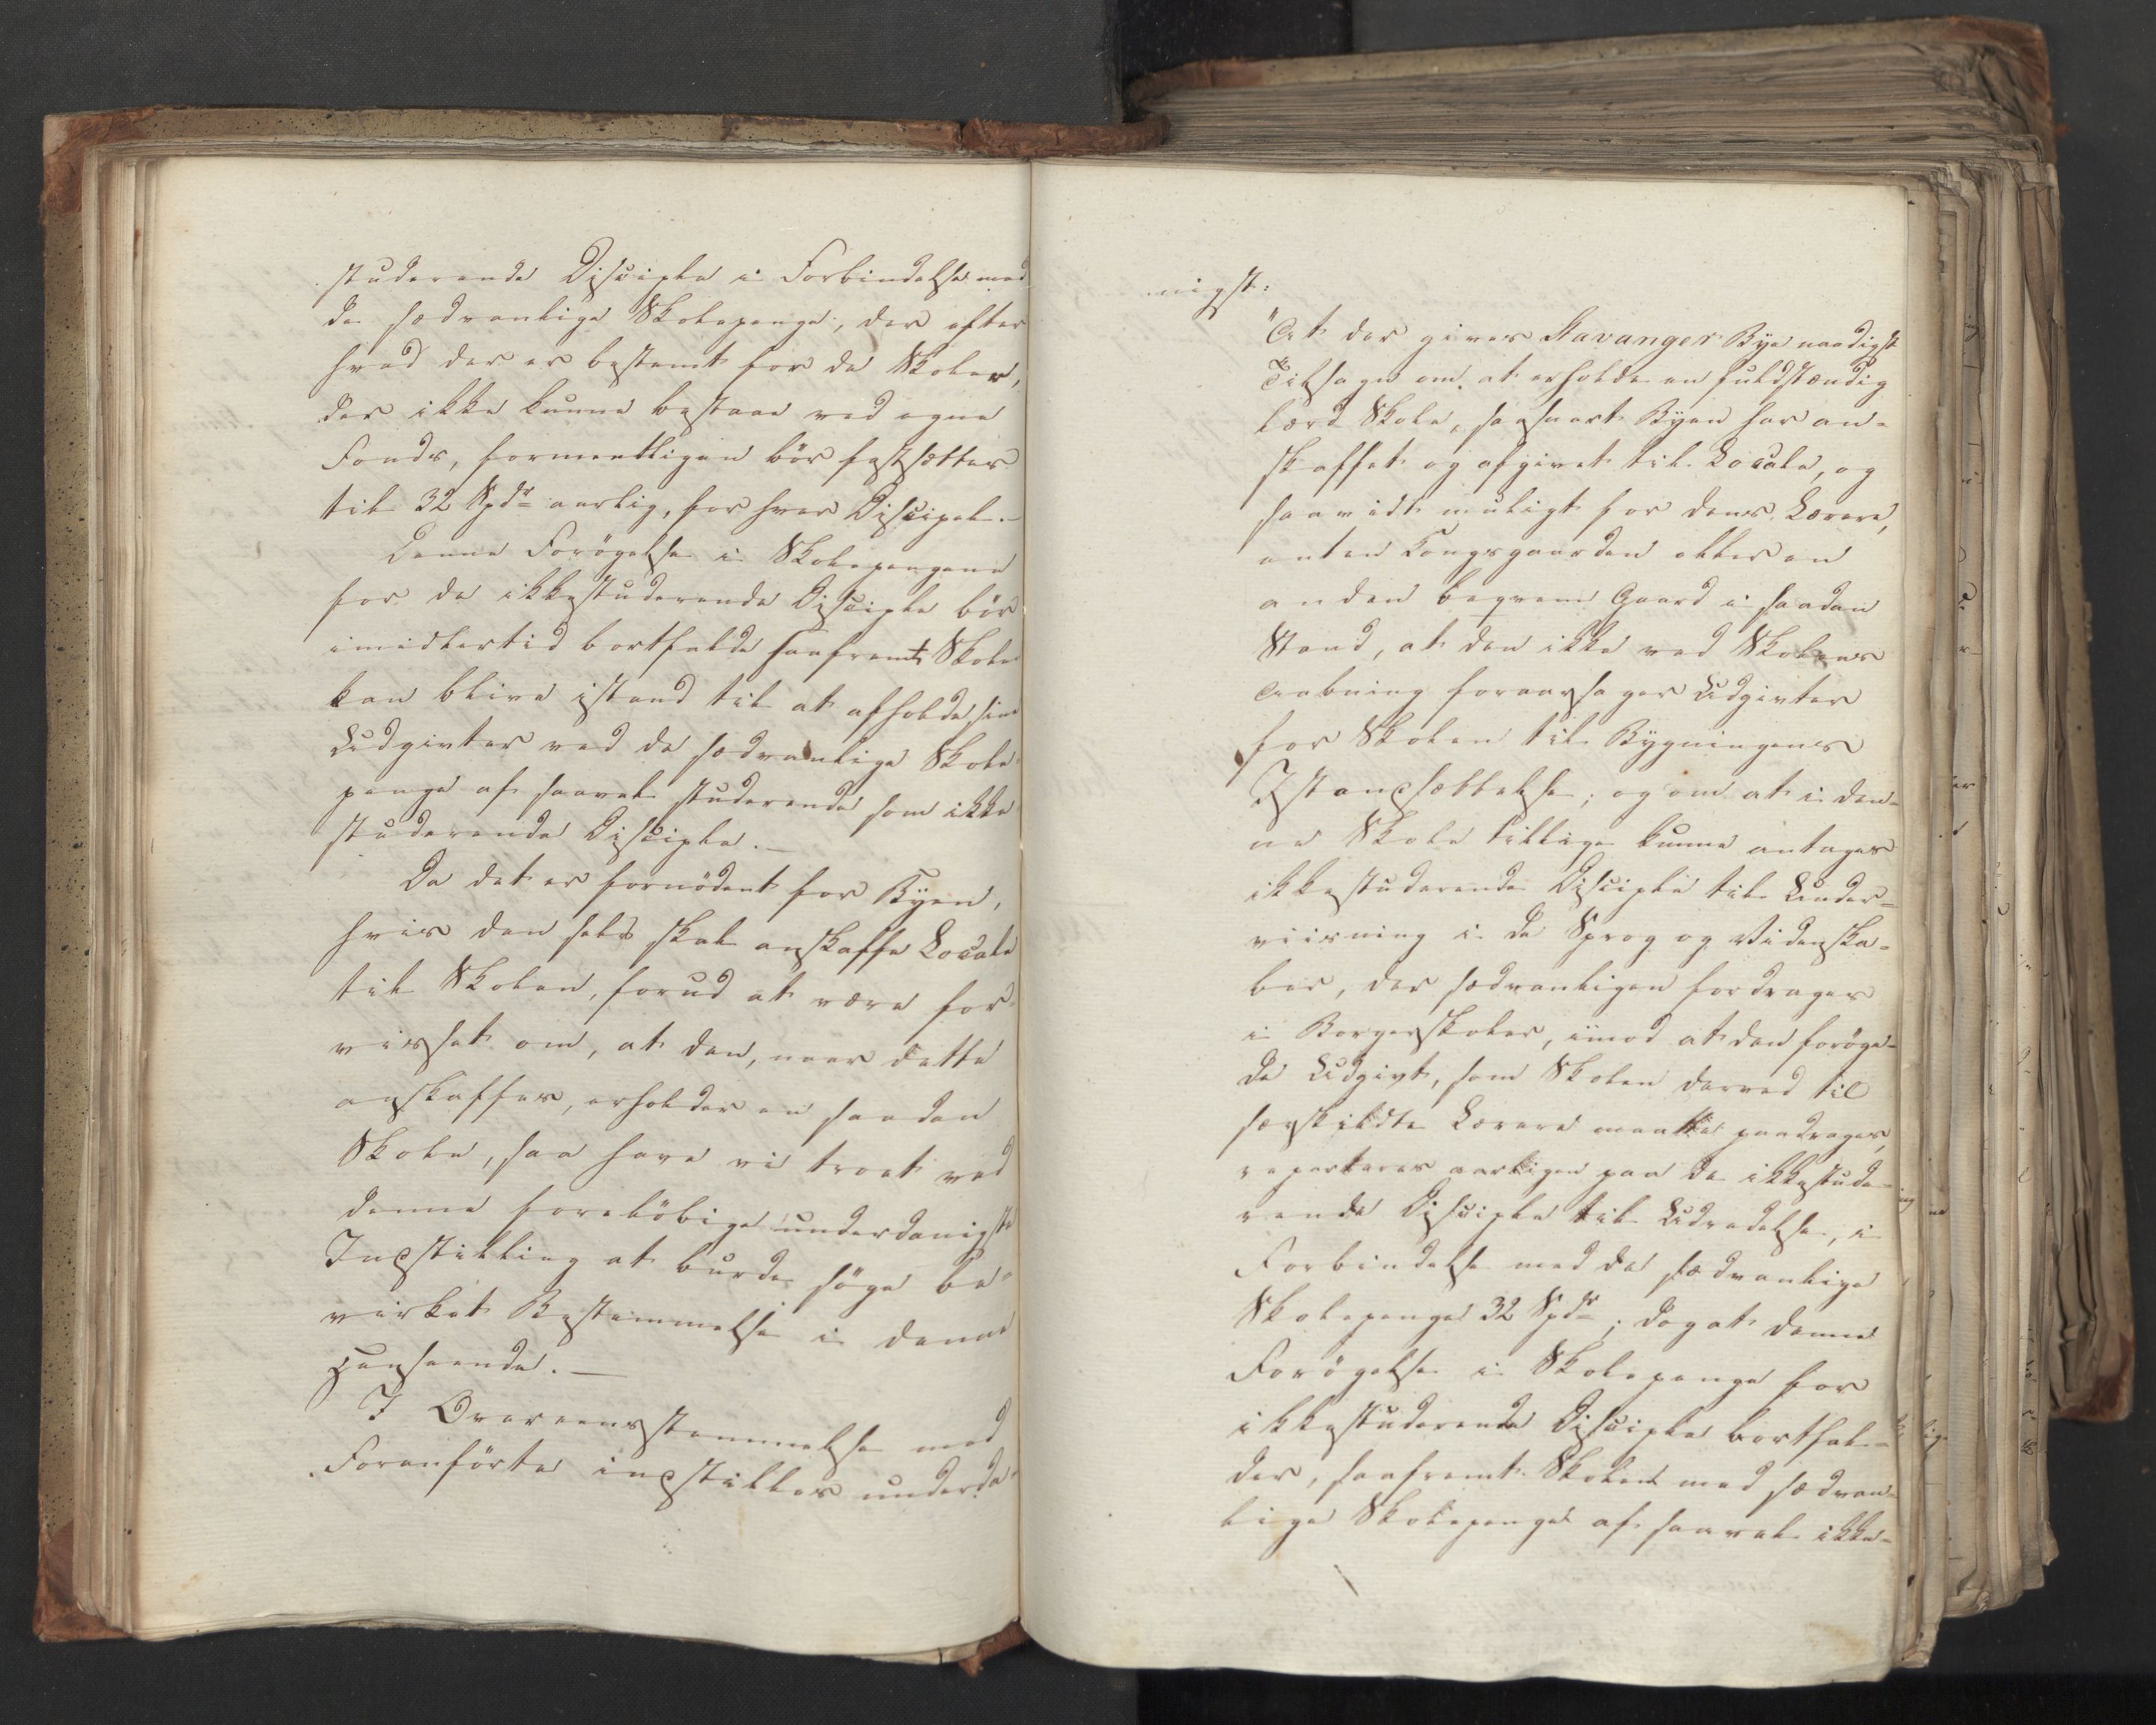 studerende Disciple i Forbindelse med
de sædvanlige Skolepenge, der efter
hvad der er bestemt for de Skoler,
der ikke kunne bestaae ved egne
Fonds, formeentligen bör fastsættes
til 32 Spdr aarlig, for hver Discipel.
Denne Forögelse i Skolepengene
for de ikkestuderende Disciple bör
imidlertid bortfalde saafremt Skolen
kan blive istand til at afholde sine
Udgivter ved de sædvanlige Skole-
penge af saavel studerende som ikke
studerende Disciple.—
Da det er fornödent for Byen,
hvis den selv skal anskaffe Locale
til Skolen, forud at være for-
visset om, at den, naar dette
anskaffes, erholder en saadan
Skole, saa have vi troet ved
denne foreløbige underdanigste
Indstilling at burde söge be-
virket Bestemmelse i denne
Henseende.—
I Overeensstemmelse med
Foranförte indstilles underda-
nigst:
"At der gives Stavanger Bye naadigst
Tilsagn om at erholde en fuldstændig
lærd Skole, saasnart Byen har an-
skaffet og afgivet til Locale, og
saavidt muligt for dens Lærere,
enten Kongsgaarden eller en
anden beqvem Gaard i saadan
Stand, at den ikke ved Skolens
Aabning foraarsager Udgivter
for Skolen til Bygningens
Istandsættelse; og om at i den-
ne Skole tillige kunne antages
ikkestuderende Disciple til Under-
viisning i de Sprog og Videnska-
ber, der sædvanligen fordrages
i Borgerskoler, imod at den foröge-
de Udgivt, som Skolen derved til
særskildte Lærere maatte paadrages,
reparteres aarligen paa de ikkestude-
rende Disciple til Udredelse, i
Forbindelse med de sædvanlige
Skolepenge 32 Spdr; dog at denne
Forögelse i Skolepenge for
ikkestuderende Disciple bortfal-
der, saafremt Skolen med sædvan-
lige Skolepenge af saavel ikke-